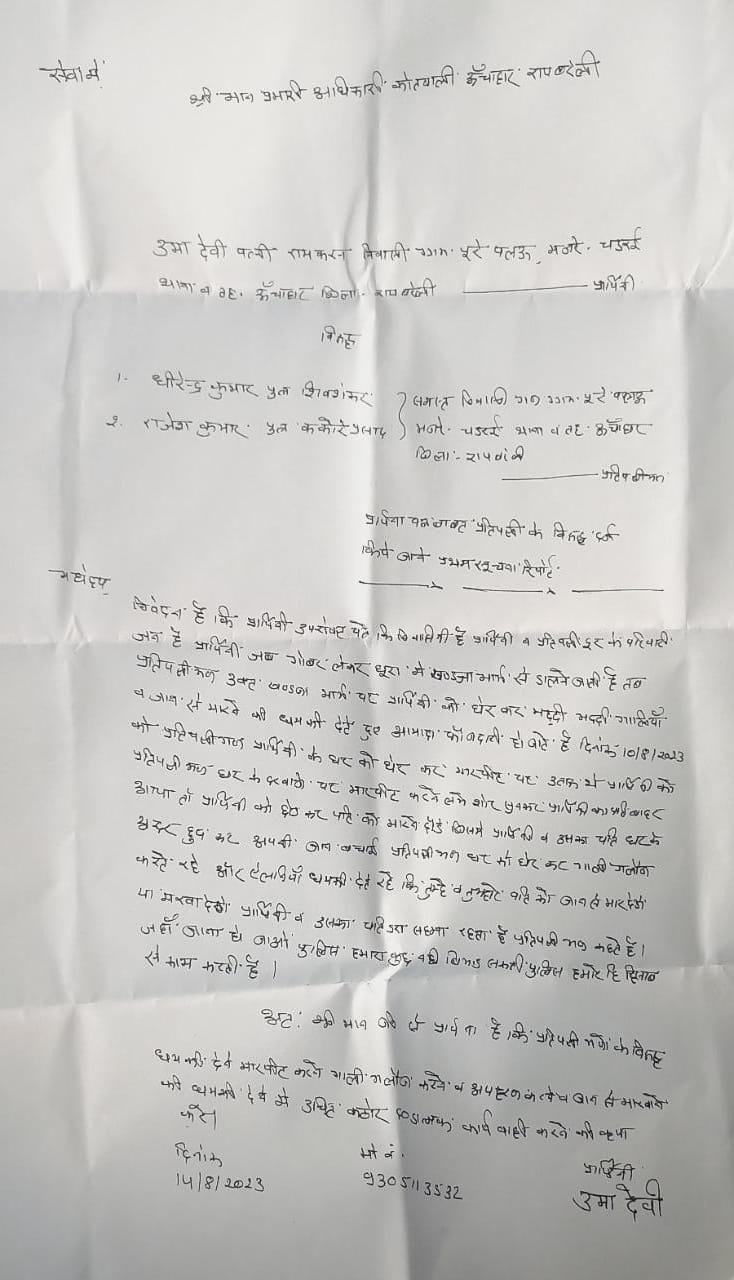 सेवा में
श्री मान प्रभारी अधिकारी कोतवाली ऊँचाहार रायबरेली
उमा देवी पत्नी रामकरन निवासी ग्राम पूरे वलऊ, मजरे. चडरई
थाना व तह. ऊँचाहार जिला. रायबरेली ——— प्रार्थिनी
विरुद्ध
1. धीरेन्द्र कुमार पुत्र शिवशंकर
2. राजेश कुमार पुत्र ककोरे प्रसाद
समस्त निवासी गन ग्राम पूरे वलऊ
मजरे. चडरई थाना व तह ऊँचाहार
जिला:- रायबरेली
——— प्रतिपक्षीगन
प्रार्थना पत्र बावत प्रतिपक्षी के विरुद्ध दर्ज
किये जाने प्रथम सूचना रिपोर्ट
महोदय
निवेदन है कि प्रार्थिनी उपरोक्त पते कि निवासिनी है प्रार्थिनी व प्रतिपक्षी दूर के परिवारी
जन है प्रार्थिनी जब गोबर लेकर घूरा मे खण्डजा मार्ग से डालने जाती है तब
प्रतिपक्षीगन उक्त खण्डजा मार्ग पर प्रार्थिनी को घेर कर भद्दी भद्दी गालियाँ
व जान से मारने की धमकी देते हुए आमादा फौजदारी हो जाते है दिनांक 10/8/2023
को प्रतिपक्षीगण प्रार्थिनी के घर को घेर कर मारपीट पर उतारू थे प्रार्थिनी को
प्रतिपक्षीगन घर के दरवाजे पर मारपीट करने लगे शोर सुनकर प्रार्थिनी का पति बाहर
आया तो प्रार्थिनी को छोड कर पति को मारने दौडे जिसमे प्रार्थिनी व उसका पति घर के
अन्दर घुस कर अपनी जान बचाई प्रतिपक्षीगन घर को घेर कर गाली गलौज
करते रहे और ऐलानियाँ धमकी देते रहे कि तुम्हे व तुम्हारे पति को जान से मार देगे
या मरवा देगे प्रार्थिनी व उसका पति डरा सहमा रहता है प्रतिपक्षी गन कहते है।
जहाँ जाना हो जाओ पुलिस हमारा कुछ नही बिगाड सकती पुलिस हमारे हि हिसाब
से काम करती है।
अत: श्री मान जी से प्रार्थना है कि प्रतिपक्षी गणो के विरुद्ध
धमकी देने मारपीट करने गाली गलौज करने व अपहरन करने व जान से मारवाने
की धमकी देने मे उचित कठोर दण्डात्मक कार्यवाही करने की कृपा
करें।
दिनांक
14/8/2023
मो नं.
9305113532
प्रार्थिनी
उमा देवी